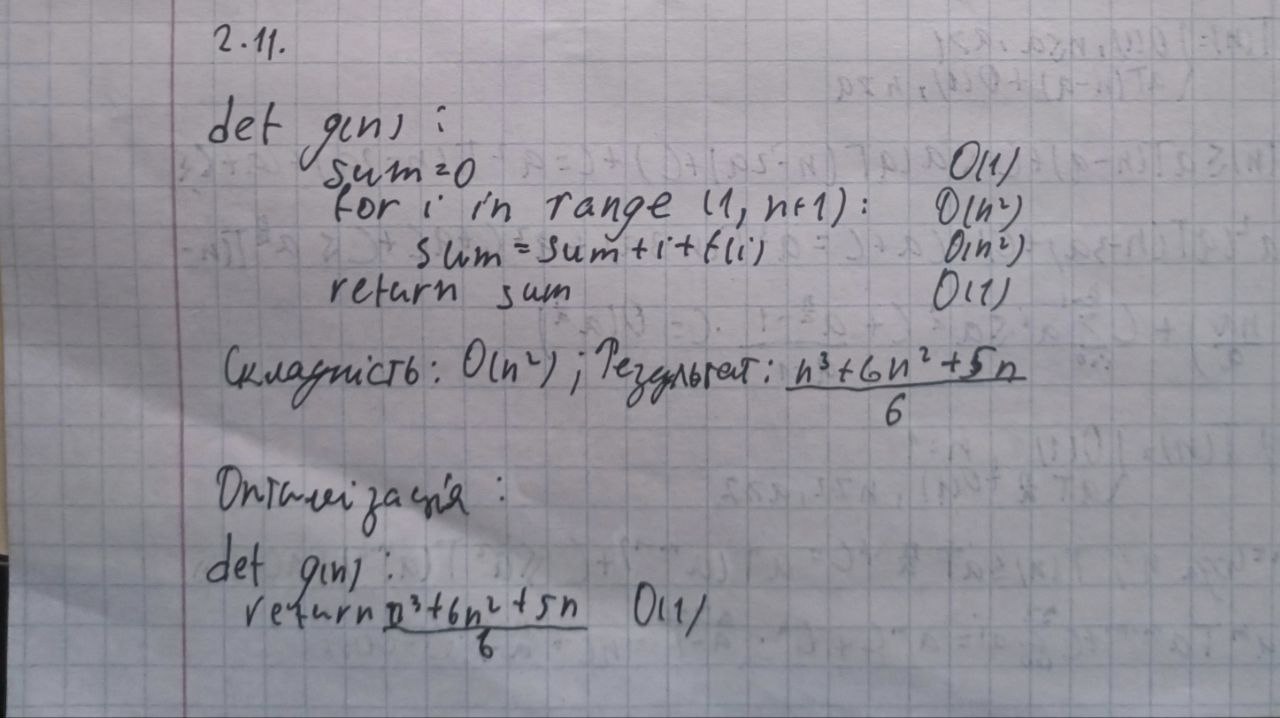 2.11.
def g(n):
sum=0 O(1)
for i in range (1, n+1): O(n²)
sum=sum+i+f(i) O(n²)
return sum O(1)
Складність: O(n²); Результат: (n³+6n²+5n)/6
Оптимізація:
def g(n):
return (n³+6n²+5n)/6 O(1)